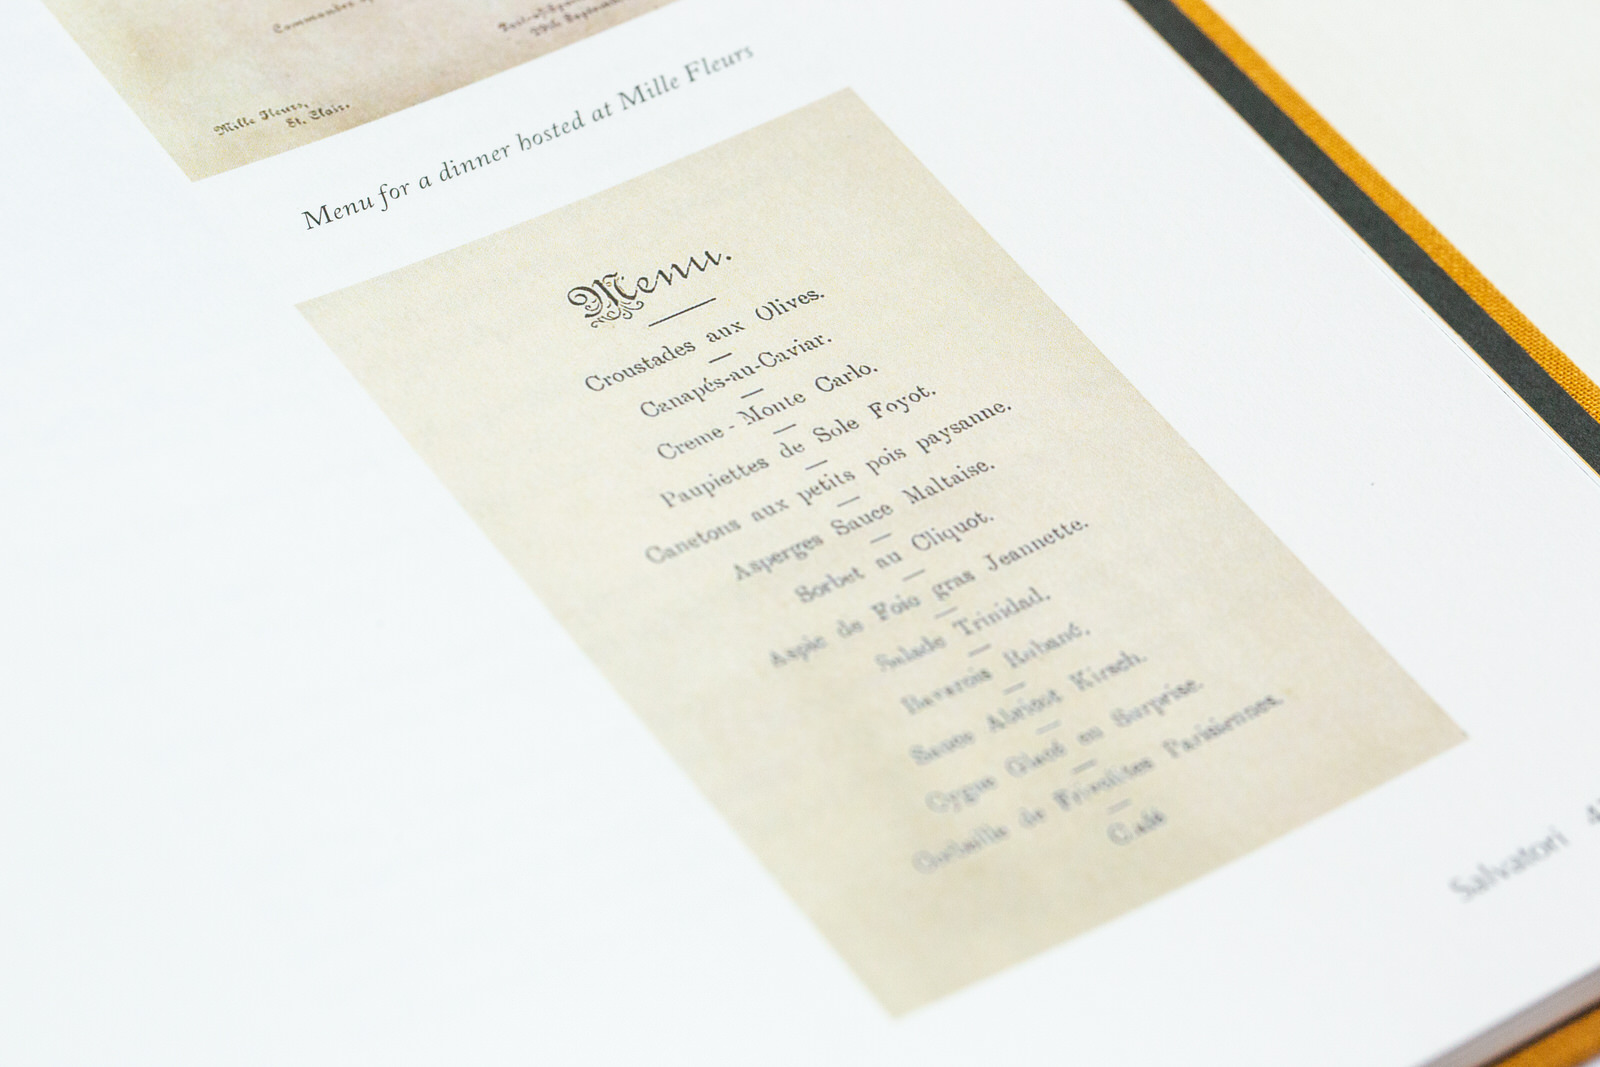 Commander
Port-of-Spain
29th September
Mille Fleurs,
St. Clair.
Menu for a dinner hosted at Mille Fleurs
Menu.
Croustades aux Olives.
Canapés-au-Caviar.
Creme - Monte Carlo.
Paupiettes de Sole Foyot.
Canetons aux petits pois paysanne.
Asperges Sauce Maltaise.
Sorbet au Cliquot.
Aspic de Foie gras Jeannette.
Salade Trinidad.
Bavarois Rubané.
Sauce Abricot Kirsch.
Cygne Glacé en Surprise.
de Parisiennes.
Café
Salvatori